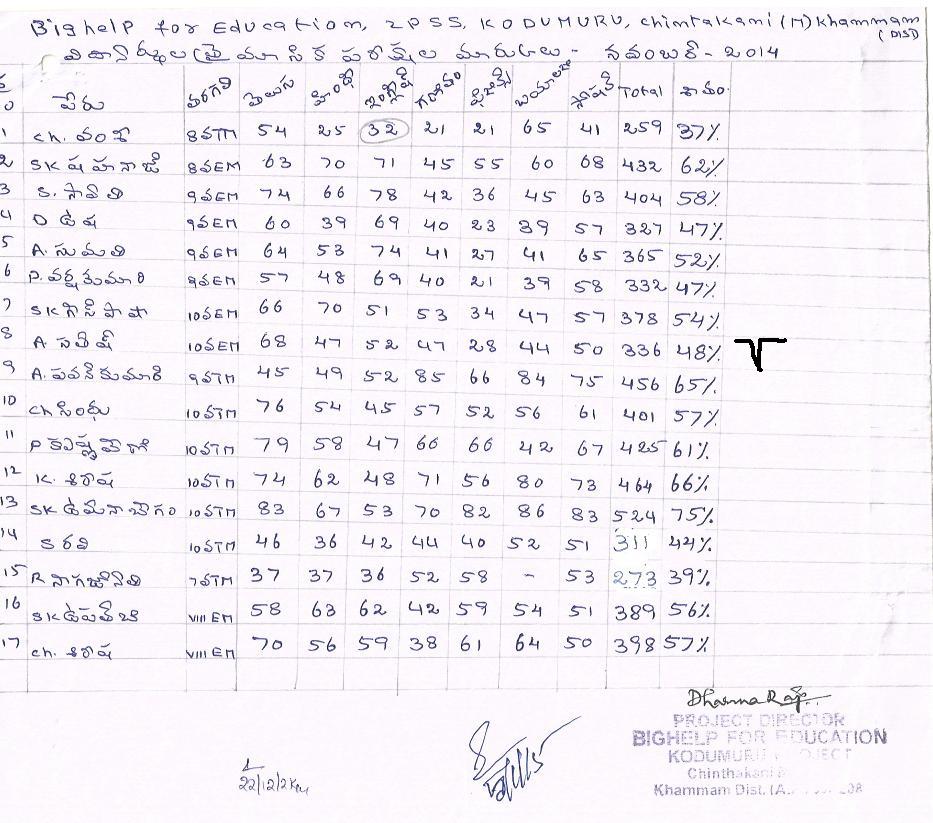 Bighelp for Education, ZPSS, KODUMURU, Chintakani (M) Khammam (DIST)
విద్యార్థుల త్రైమాసిక పరీక్షల మార్కులు - నవంబర్ - 2014
పేరు తరగతి తెలుగు హిందీ ఇంగ్లీష్ గణితం ఫిజిక్స్ బయాలజీ సోషల్ Total శాతం
1 Ch. వంశీ 8వTM 54 25 32 21 21 65 41 259 37%
2 SK షహనాజ్ 8వEM 63 70 71 45 55 60 68 432 62%
3 S. 9వEM 74 66 78 42 36 45 63 404 58%
4 D ఉష 9వEM 60 39 69 40 23 39 57 327 47%
5 A. సుమతి 9వEM 64 53 74 41 27 41 65 365 52%
6 P. వర్షకుమారి 9వEM 57 48 69 40 21 39 58 332 47%
7 SK 10వEM 66 70 51 53 34 47 57 378 54%
8 A 10వEM 68 47 52 47 28 44 50 336 48%
9 A. పవన్ కుమారి 9వTM 45 49 52 85 66 84 75 456 65%
10 Ch సింధు 10వTM 76 54 45 57 52 56 61 401 57%
11 P 10వTM 79 58 47 66 66 42 67 425 61%
12 K. శిరీష 10వTM 74 62 48 71 56 80 73 464 66%
13 SK 10వTM 83 67 53 70 82 86 83 524 75%
14 S రవి 10వTM 46 36 42 44 40 52 51 311 44%
15 R 7వTM 37 37 36 52 58 - 53 273 39%
16 SK VIII EM 58 63 62 42 59 54 51 389 56%
17 Ch. శిరీష VIII EM 70 56 59 38 61 64 50 398 57%
Dharma Raju
PROJECT DIRECTOR
BIGHELP FOR EDUCATION
KODUMURU PROJECT
Chinthakani
Khammam Dist.